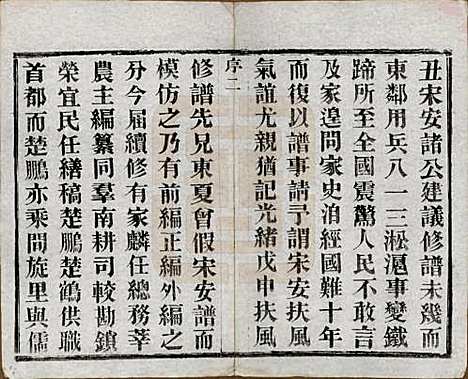 丑宋安諸公建議修譜未幾而
東鄰用兵八一三淞滬事變鐵
蹄所至全國震驚人民不敢言
及家遑問家史洎經國難十年
而復以譜事請予謂宋安扶風
氣誼尤親猶記光緒戊申扶風
序二
修譜先兄東夏曾假宋安譜而
模仿之乃有前編正編外編之
分今屆續修有家麟任總務莘
農主編纂同羣南耕司較勘鎖
榮宜民任繕稿楚鵬楚鶴供職
首都而楚鵬亦乘間旋里與儒